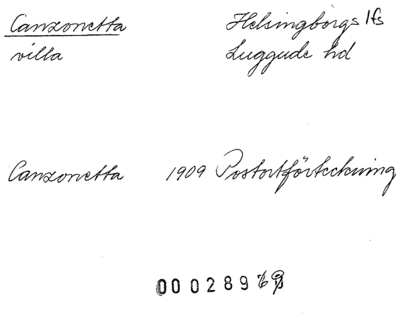 Canzonetta Helsingborgs lfs
villa Luggude hd
Canzonetta 1909 Postortförteckning
000289